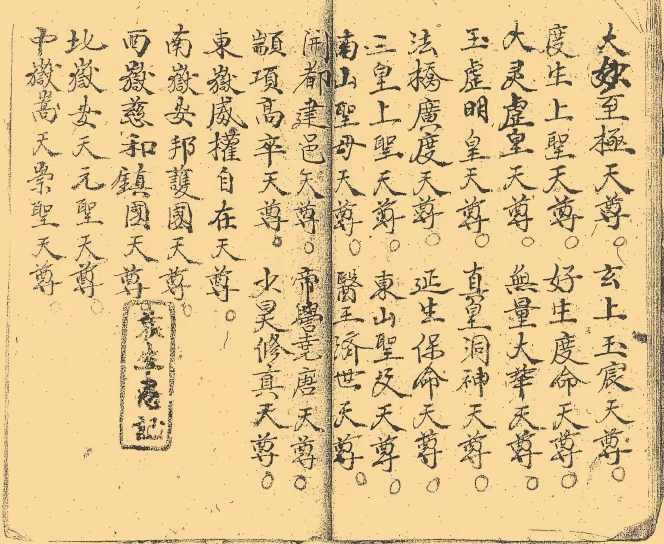 大妙至極天尊。玄上玉宸天尊。
度生上聖天尊。好生度命天尊。
大灵虛皇天尊。無量大華天尊。
玉虛明皇天尊。真皇洞神天尊。
法橋廣度天尊。延生保命天尊。
三皇上聖天尊。東山聖父天尊。
南山聖母天尊。醫王济世天尊。
開都建邑天尊。帝嚳堯唐天尊。
顓頊高卒天尊。少昊修真天尊。
東嶽威權自在天尊。
南嶽安邦護國天尊。
西嶽慈和鎮國天尊。
北嶽安天元聖天尊。
中嶽嵩天崇聖天尊。
記